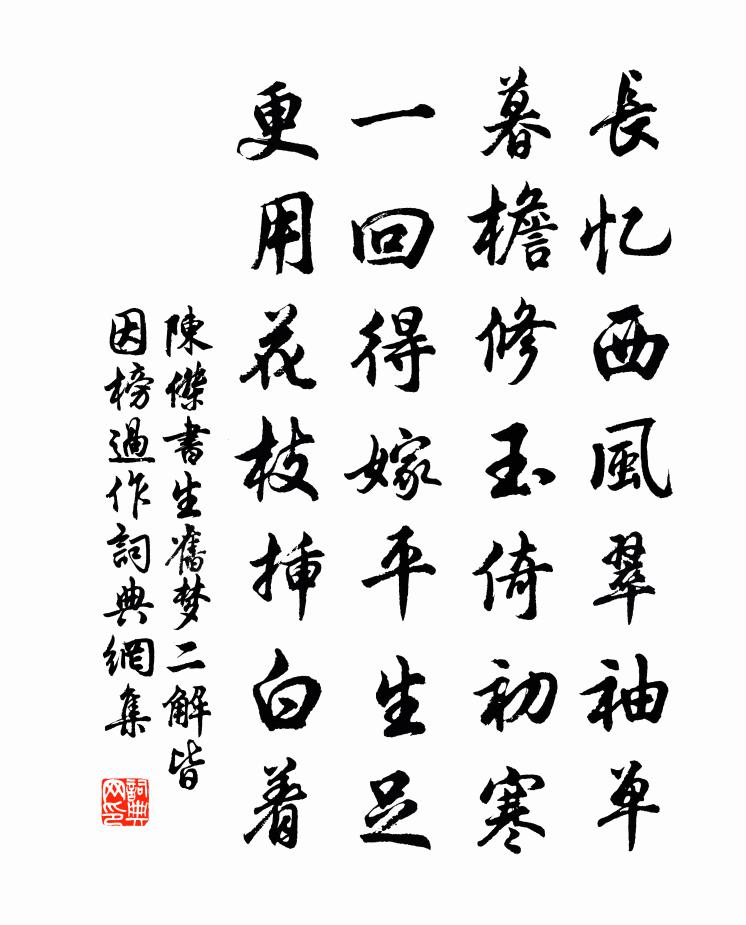 長忆西風翠袖单
暮檐修玉倚初寒
一回得嫁平生足
更用花枝插白着
陳傑書生舊梦二解皆
因榜過作詞典網集
詞典
网印